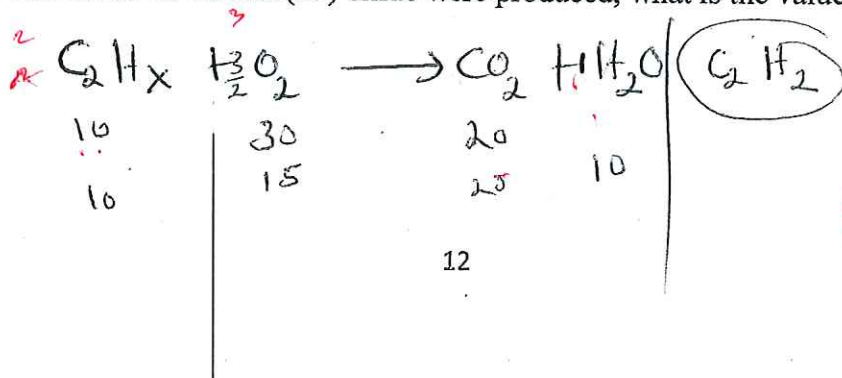 were produced, what is the value
2 3
C₂Hₓ + 3/2 O₂ ⟶ CO₂ + 1 H₂O C₂H₂
10 30 20
10 15 25 10
12